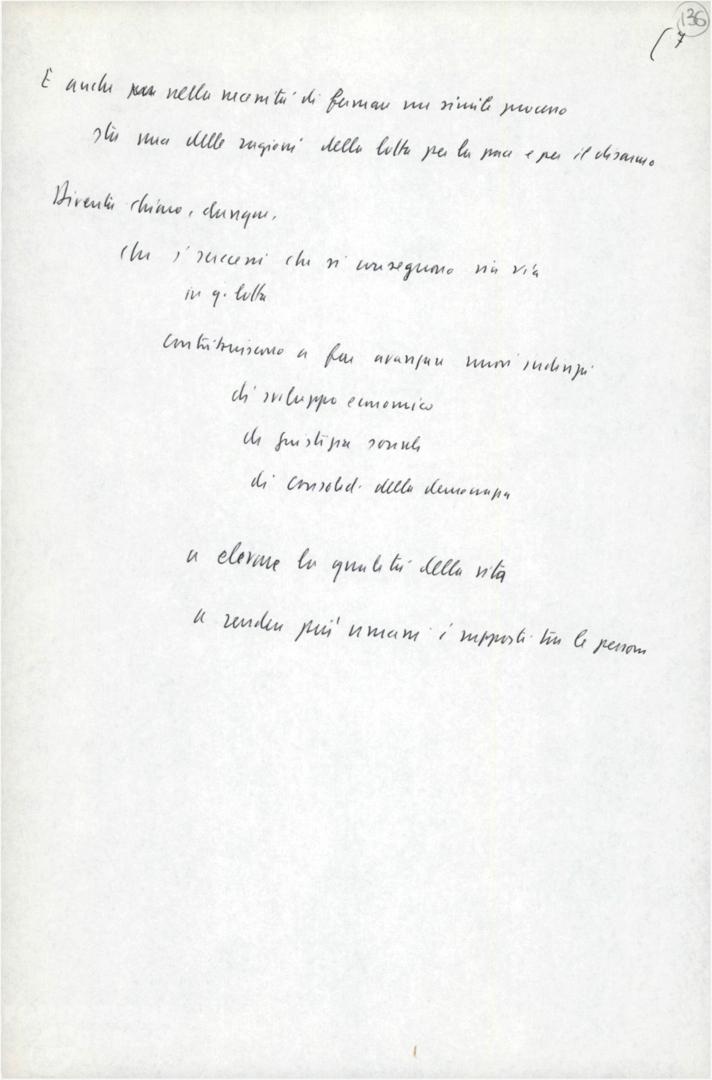 136
(7
E anche nella necessità di fermare un simile processo
sta una delle ragioni della lotta per la pace e per il disarmo
Diventa chiaro, dunque,
che i successi che si conseguono via via
in q. lotta
contribuiscono a far avanzare nuovi indirizzi
di sviluppo economico
di giustizia sociale
di consolid. della democrazia
a elevare la qualità della vita
a rendere più umani i rapporti tra le persone